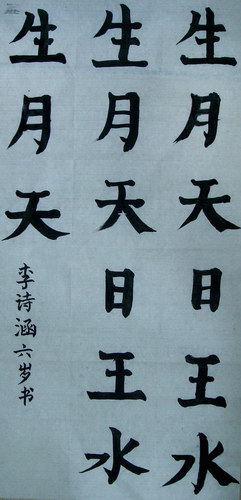 生月天日王水
生月天日王水
生月天
李诗涵六岁书